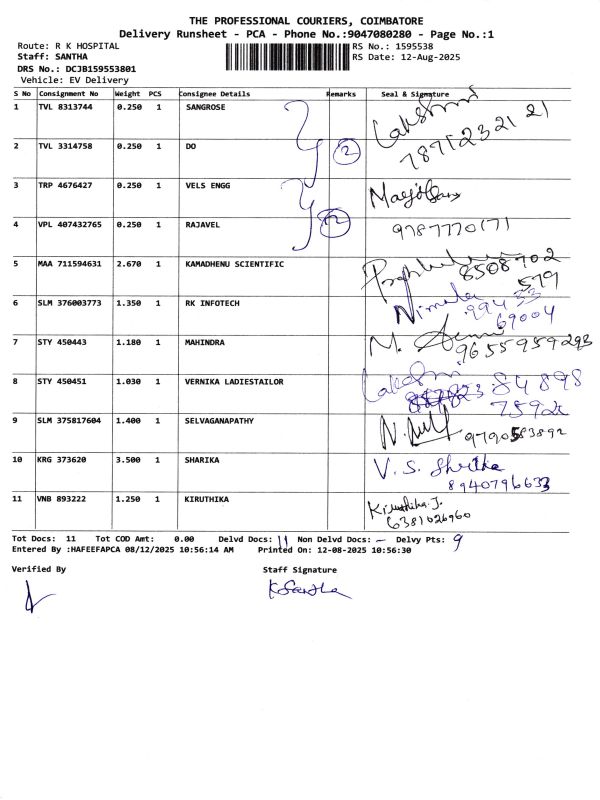 THE PROFESSIONAL COURIERS, COIMBATORE
Delivery Runsheet - PCA - Phone No.:9047080280 - Page No.:1
Route: R K HOSPITAL RS No.: 1595538
Staff: SANTHA RS Date: 12-Aug-2025
DRS No.: DCJB159553801
Vehicle: EV Delivery
S No Consignment No Weight PCS Consignee Details Remarks Seal & Signature
1 TVL 8313744 0.250 1 SANGROSE Lakshmi
2 TVL 3314758 0.250 1 DO 2 7871232121
3 TRP 4676427 0.250 1 VELS ENGG
4 VPL 407432765 0.250 1 RAJAVEL 2 9787770171
5 MAA 711594631 2.670 1 KAMADHENU SCIENTIFIC 8508702
579
6 SLM 376003773 1.350 1 RK INFOTECH Nimala 99433
69004
7 STY 450443 1.180 1 MAHINDRA M. 9655959293
8 STY 450451 1.030 1 VERNIKA LADIESTAILOR Lakshmi 84898
9 SLM 375817604 1.400 1 SELVAGANAPATHY
10 KRG 373620 3.500 1 SHARIKA V. S. 8940796633
11 VNB 893222 1.250 1 KIRUTHIKA Kiruthika.J.
6381026960
Tot Docs: 11 Tot COD Amt: 0.00 Delvd Docs: 11 Non Delvd Docs: – Delvy Pts: 9
Entered By :HAFEEFAPCA 08/12/2025 10:56:14 AM Printed On: 12-08-2025 10:56:30
Verified By Staff Signature
K. Santha